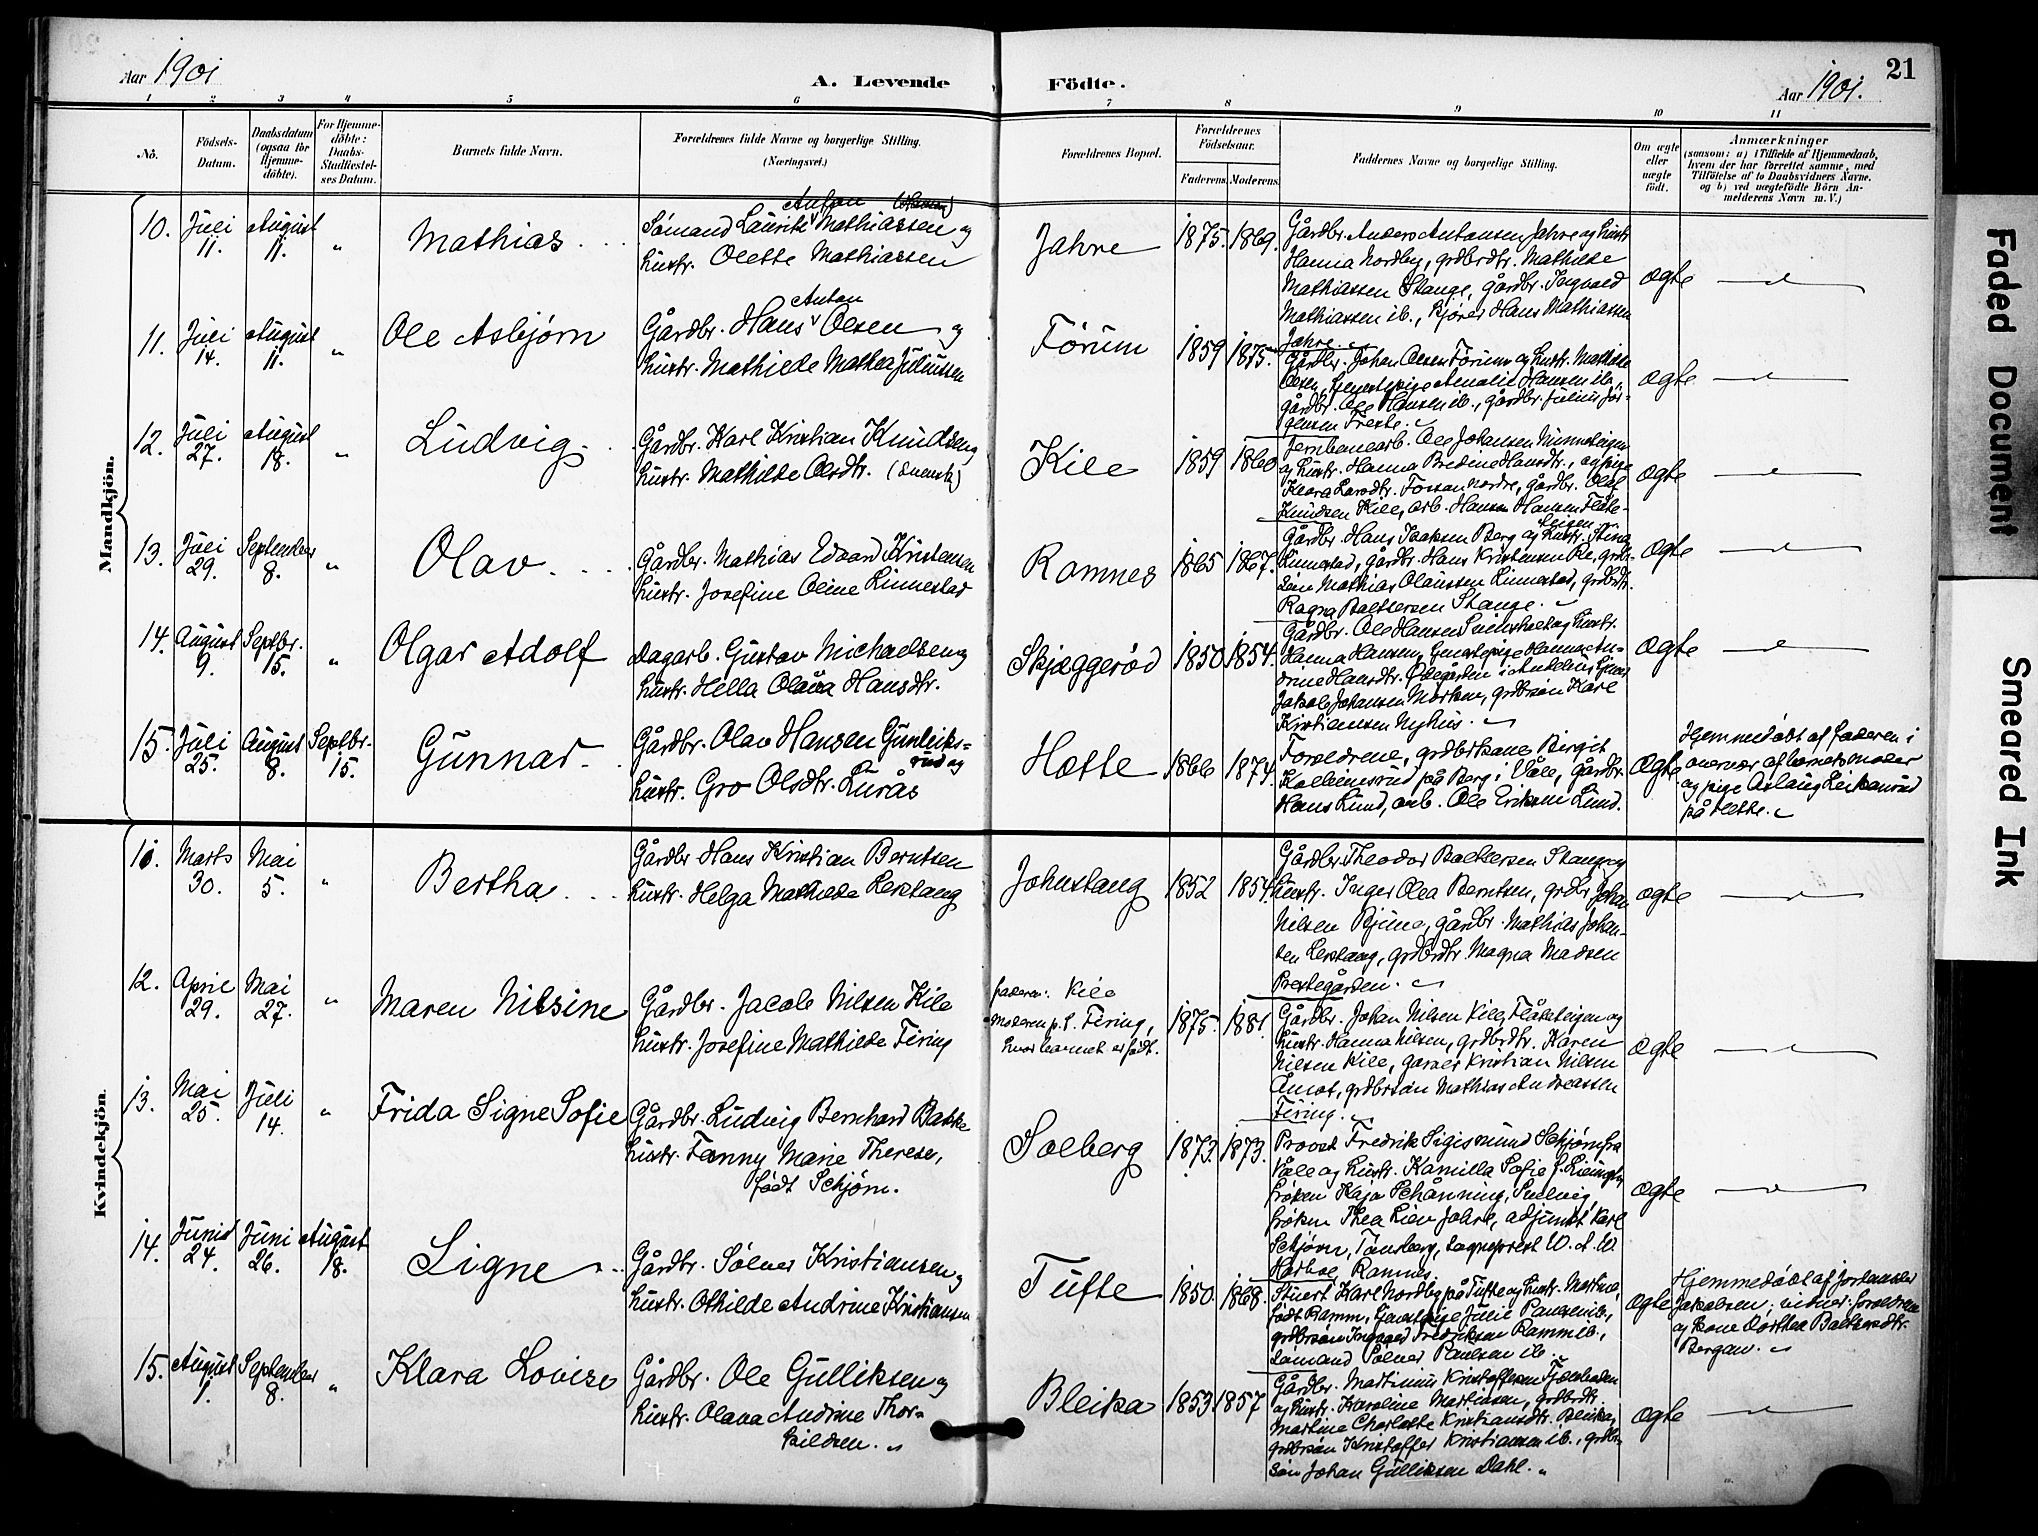 21
Aar 1901
A. Levende
Födte.
Aar 1901.
1 2 3 4 5 6 7 8 9 10 11
No.
Födsels-
Datum.
Daabsdatum
(ogsaa for
Hjemme-
döbte).
For Hjemme-
döbte:
Daabs-
Stadfæstel-
ses Datum.
Barnets fulde Navn.
Forældrenes fulde Navne og borgerlige Stilling.
(Næringsvei.)
Forældrenes Bopæl.
Forældrenes
Födselsaar.
Faderens.
Moderens.
Faddernes Navne og borgerlige Stilling.
Om ægte
eller
uægte
födt.
Anmærkninger
(saasom: a) i Tilfælde af Hjemmedaab,
hvem der har forrettet samme, med
Tilföielse af to Daabsvidners Navne.
og b) ved uægtefödte Börn An-
melderens Navn m. V.)
Mandkjön.
10. Juli 11. August 11. „ Mathias
Anton
Sømand Lauritz Mathiassen og
hustr. Olette Mathiassen
Jahre 1875. 1869.
Gårdbr. Anders Antonsen Jahre og hustr.
Hanna Nordby, grdbrdtr. Mathilde
Mathiassen Stange, gårdbr. Ingvald
Mathiassen ib., Hans Mathiassen
Jahre.
ægte
11. Juli 14. August 11. „ Ole Asbjørn
Anton
Gårdbr. Hans Olsen og
hustr. Mathilde Mathea Juliussen
Førum 1859 1875.
Gårdbr. Johan Olsen Førum og hustr. Mathilde
Olsen, Amalie Hansen ib.,
gårdbr. Ole Hansen ib., gårdbr. Julius Jør-
gensen Freste.
ægte
12. Juli 27. August 18. „ Ludvig
Gårdbr. Karl Kristian Knudsen og
hustr. Mathilde Olsdtr. (svensk)
Kile 1859 1860
Jernbanearb. Ole Johansen
og hustr. Hanna Bredine Hansdtr., og pige
Klara Larsdtr. Fossan nordre, gårdbr. Olaf
Knudsen Kile, arb. Hansen Flåte-
eigen
ægte
13. Juli 29. September 8. „ Olav
Gårdbr. Mathias Edvard Kristensen
hustr. Josefine Oline Linnestad
Ramnes 1865 1867.
Gårdbr. Hans Isaksen Berg og hustr. Stina
Linnestad, gårdbr. Hans Kristensen Re, grdbr.
søn Mathias Olaussen Linnestad, grdbrdtr.
Ragna Baltersen Stange.
ægte
14. August 9. Septbr. 15. „ Olgar Adolf
Dagarb. Gustav Michaelsen og
hustr. Hella Olava Hansdtr.
Skjæggerød 1850 1854.
Gårdbr. Ole Hansen og hustr.
Hanna Hansen, Hanna An-
drine Hansdtr. Ødegården i
Jakob Johansen grdbrsøn Karl
Kristiansen Nyhus.
ægte
15. Juli 25. August 8. Septbr. 15. Gunnar
Gårdbr. Olav Hansen Gunleiks-
rud og
hustr. Gro Olsdtr. Lurås
Hotte 1866 1874.
Foreldrene, grdbrkone Birgit
på Berg i Våle, gårdbr.
Hans Lund, arb. Ole Eriksen Lund.
ægte
Hjemmedøbt af faderen i
overvær af barnets moder
og pige Aslaug
på Hotte.
Kvindekjön.
11. Marts 30. Mai 5. „ Bertha
Gårdbr. Hans Kristian Berntsen
hustr. Helga Mathilde Lerstang
Johnstang 1852 1854.
Gårdbr. Theodor Baltersen Stange og
hustr. Inger Olea Berntsen, grdbr. Johan
Nilsen Bjune, gårdbr. Mathias Johan-
sen Lerstang, grdbrdtr. Magna Madsen
Prestegården.
ægte
12. April 29. Mai 27. „ Maren Nilsine
Gårdbr. Jacob Nilsen Kile
hustr. Josefine Mathilde Firing
faderen: Kile
moderen p.t. Firing,
hvor barnet er født.
1875. 1881.
Gårdbr. Johan Nilsen Kile, Flåteeigen og
hustr. Hanna Nilsen, grdbrdtr. Karen
Nilsen Kile, Kristian Nilsen
grdbrsøn Mathias Andreassen
Firing.
ægte
13. Mai 25. Juli 14. „ Frida Signe Sofie
Gårdbr. Ludvig Bernhard Bakke
hustr. Fanny Marie Therese,
født Schjørn.
Solberg 1873. 1873.
Provst Fredrik Sigismund Schjørn fra
Våle og hustr. Kamilla Sofie f.
frøken Kaja Schånning,
frøken Thea Lien Jahre, adjunkt Karl
Schjørn, Tønsberg, sogneprest W. A. W.
Harboe, Ramnes
ægte
14. Juni 24. Juni 26. August 18. Signe
Gårdbr. Sølver Kristiansen og
hustr. Othilde Andrine Kristiansen
Tufte 1850 1868.
Karl Nordby på Tufte og hustr. Martine,
født Ramm, Julie Paulsen ib.,
grdbrsøn Ingvald Fredriksen Ramm ib.,
sømand Sølver Paulsen ib.
ægte
Hjemmedøbt af jordmoder
Jakobsen; vidner: foreldrene
og kone Dorthea Baltersdtr.
Bergan.
15. August 1. September 8. „ Klara Lovise
Gårdbr. Ole Gulliksen og
hustr. Olava Andrine Thor-
kildsen.
Bleika 1853 1857
Gårdbr. Martinus Kristoffersen
og hustr. Karoline Martinsen, grdbrdtr.
Martine Charlotte Kristiansdtr. Bleika,
grdbrsøn Kristoffer Kristiansen ib., grdbr-
søn Johan Gulliksen Dahl.
ægte
Faded Document
Smeared Ink